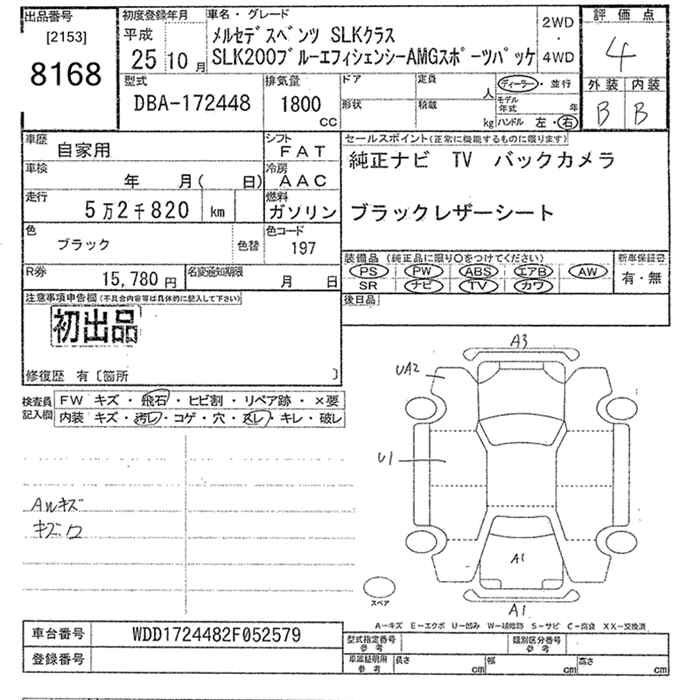 出品番号
[2153]
8168
初度登録年月
平成
25年10月
車名・グレード
メルセデスベンツ SLKクラス
SLK200ブルーエフィシェンシーAMGスポーツパッケ
2WD
・
4WD
評価点
4
外装 内装
B B
型式
DBA-172448
排気量
1800
CC
ドア
形状
定員
人
積載
kg
ディーラー・並行
モデル年式 年
ハンドル 左・右
車歴
自家用
シフト
FAT
車検
年 月( 日)
冷房
AAC
走行
5万2千820 km
燃料
ガソリン
色
ブラック
色替
色コード
197
R券
15,780円
名変通知期限
月 日
セールスポイント(正常に機能するものに限ります)
純正ナビ TV バックカメラ
ブラックレザーシート
装備品 (純正品に限り○をつけてください)
PS PW ABS エアB AW
SR ナビ TV カワ
新車保証書
有・無
後日品
注意事項申告欄(不具合内容等は具体的に記入して下さい)
初出品
修復歴 有〔箇所 〕
検査員
記入欄
FW キズ・飛石・ヒビ割・リペア跡・×要
内装 キズ・汚レ・コゲ・穴・スレ・キレ・破レ
AWキズ
キズ口
A3
UA2
U1
A1
A1
スペア
A-キズ E-エクボ U-凹み W-補修跡 S-サビ C-腐食 XX-交換済
車台番号
WDD1724482F052579
登録番号
型式指定番号
参考
類別区分番号
参考
車庫証明用
参考
長さ cm
幅 cm
高さ cm